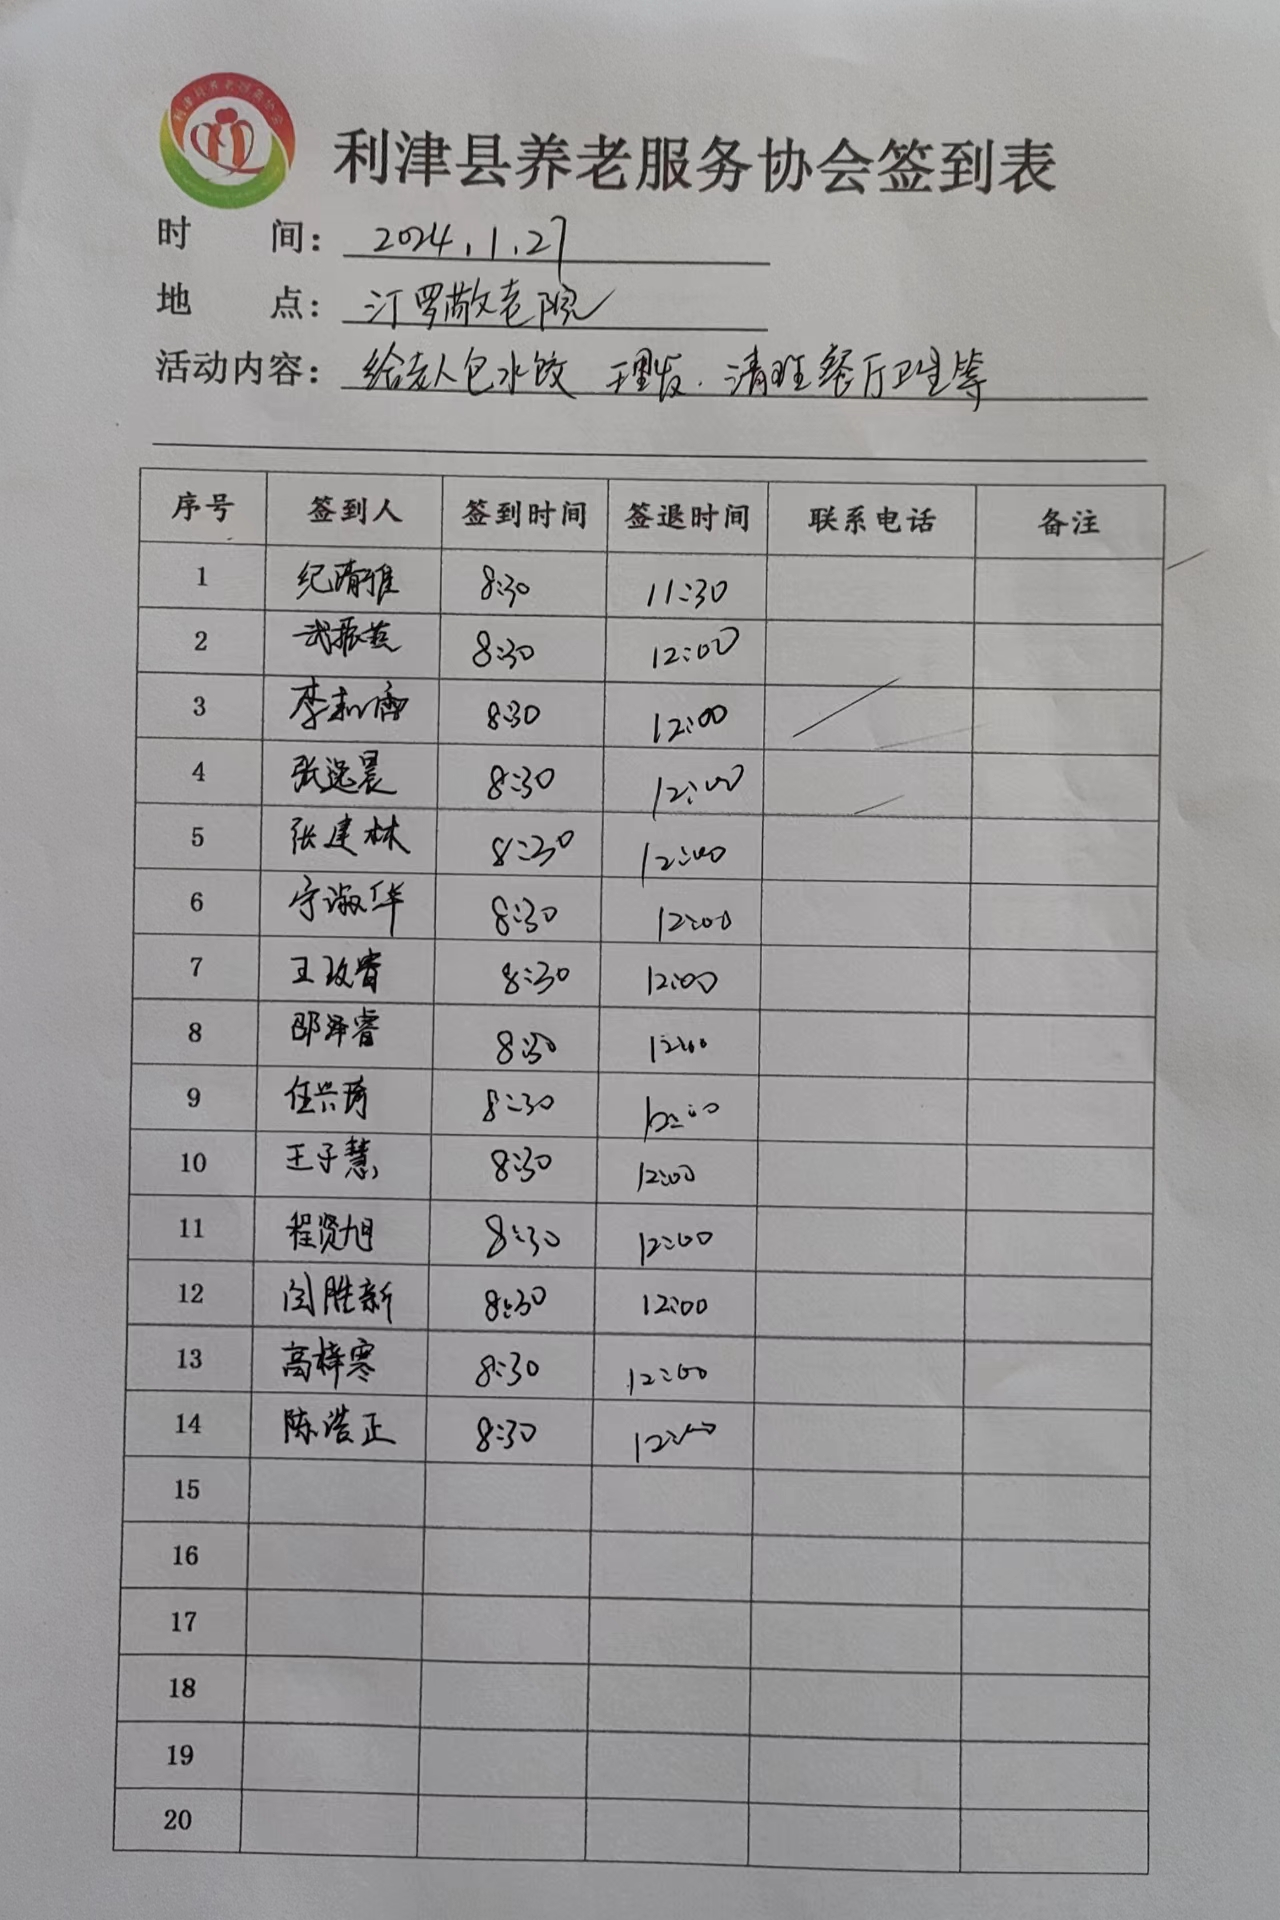 利津县养老服务协会
利津县养老服务协会签到表
时 间： 2024.1.27
地 点： 汀罗敬老院
活动内容： 给老人包水饺 理发. 清理餐厅卫生等
序号 签到人 签到时间 签退时间 联系电话 备注
1 纪清雅 8:30 11:30
2 武振兹 8:30 12:00
3 李 8:30 12:00
4 张逸晨 8:30 12:00
5 张建林 8:30 12:00
6 宁淑华 8:30 12:00
7 王玫睿 8:30 12:00
8 邵泽睿 8:30 12:00
9 任兴琦 8:30 12:00
10 王子慧 8:30 12:00
11 程贤旭 8:30 12:00
12 闫胜新 8:30 12:00
13 高梓寒 8:30 12:00
14 陈浩正 8:30 12:00
15
16
17
18
19
20